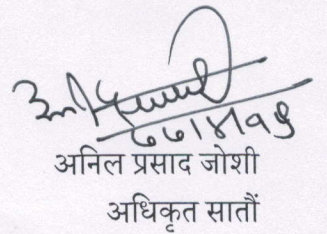 अनिल प्रसाद जोशी
अधिकृत सातौं